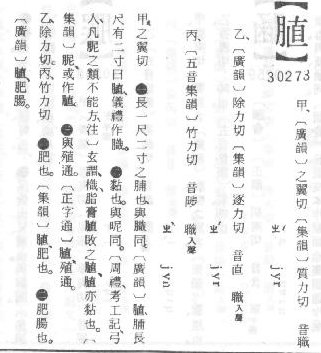 【膱】
30273
甲、〔廣韻〕之翼切〔集韻〕質力切 音職
ㄓˊ jyr
乙、〔廣韻〕除力切〔集韻〕逐力切 音直 職入聲
ㄓˊ jyr
丙、〔五音集韻〕竹力切 音陟 職入聲
ㄓˋ jyh
甲之翼切 ㊀長一尺二寸之脯也與膱同。〔廣韻〕膱脯長
尺有二寸曰膱儀禮作膱。 ㊁黏也與昵同。〔周禮考工記弓
人〕凡昵之類不能方。〔注〕玄謂樴脂膏䐈敗之䐈䐈亦黏也。〔
集韻〕昵或作䐈。 ㊂與殖通。〔正字通〕䐈殖通。
乙除力切。丙、竹力切 ㊀肥也。〔集韻〕䐈肥也。 ㊁肥腸也。
〔廣韻〕䐈、肥腸。